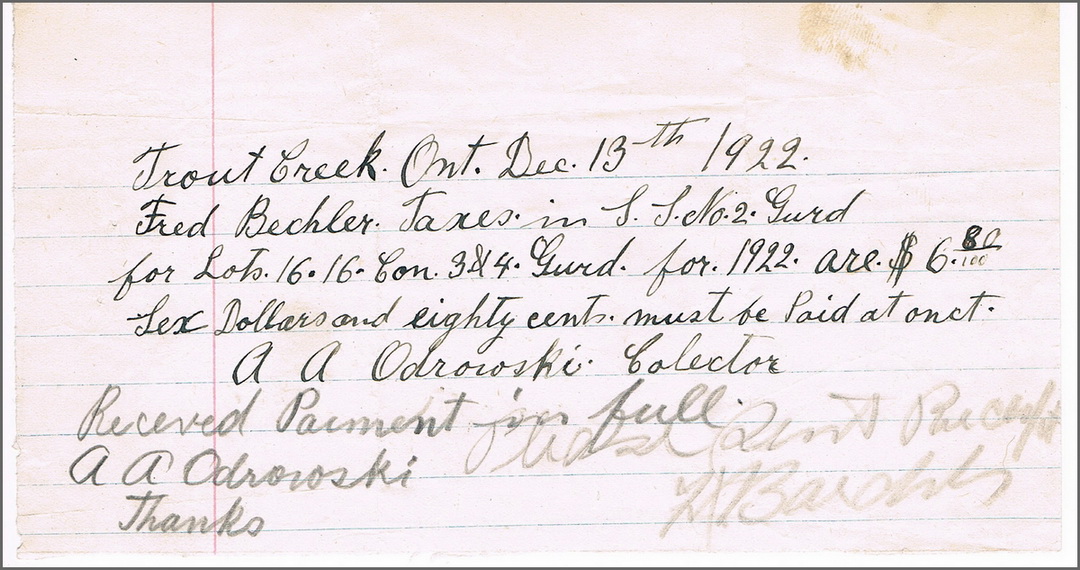 Trout Creek. Ont. Dec. 13th 1922.
Fred Bechler. Taxes. in S. S. No. 2. Gurd
for Lots. 16. 16. Con. 3 & 4. Gurd. for. 1922. are. $ 6. 80/100
Sex Dollars and eighty cents. must be Paid at onct.
A A Odrowski. Colector
Receved Paiment in full.
Please Sent Receept
A A Odrowski
Thanks